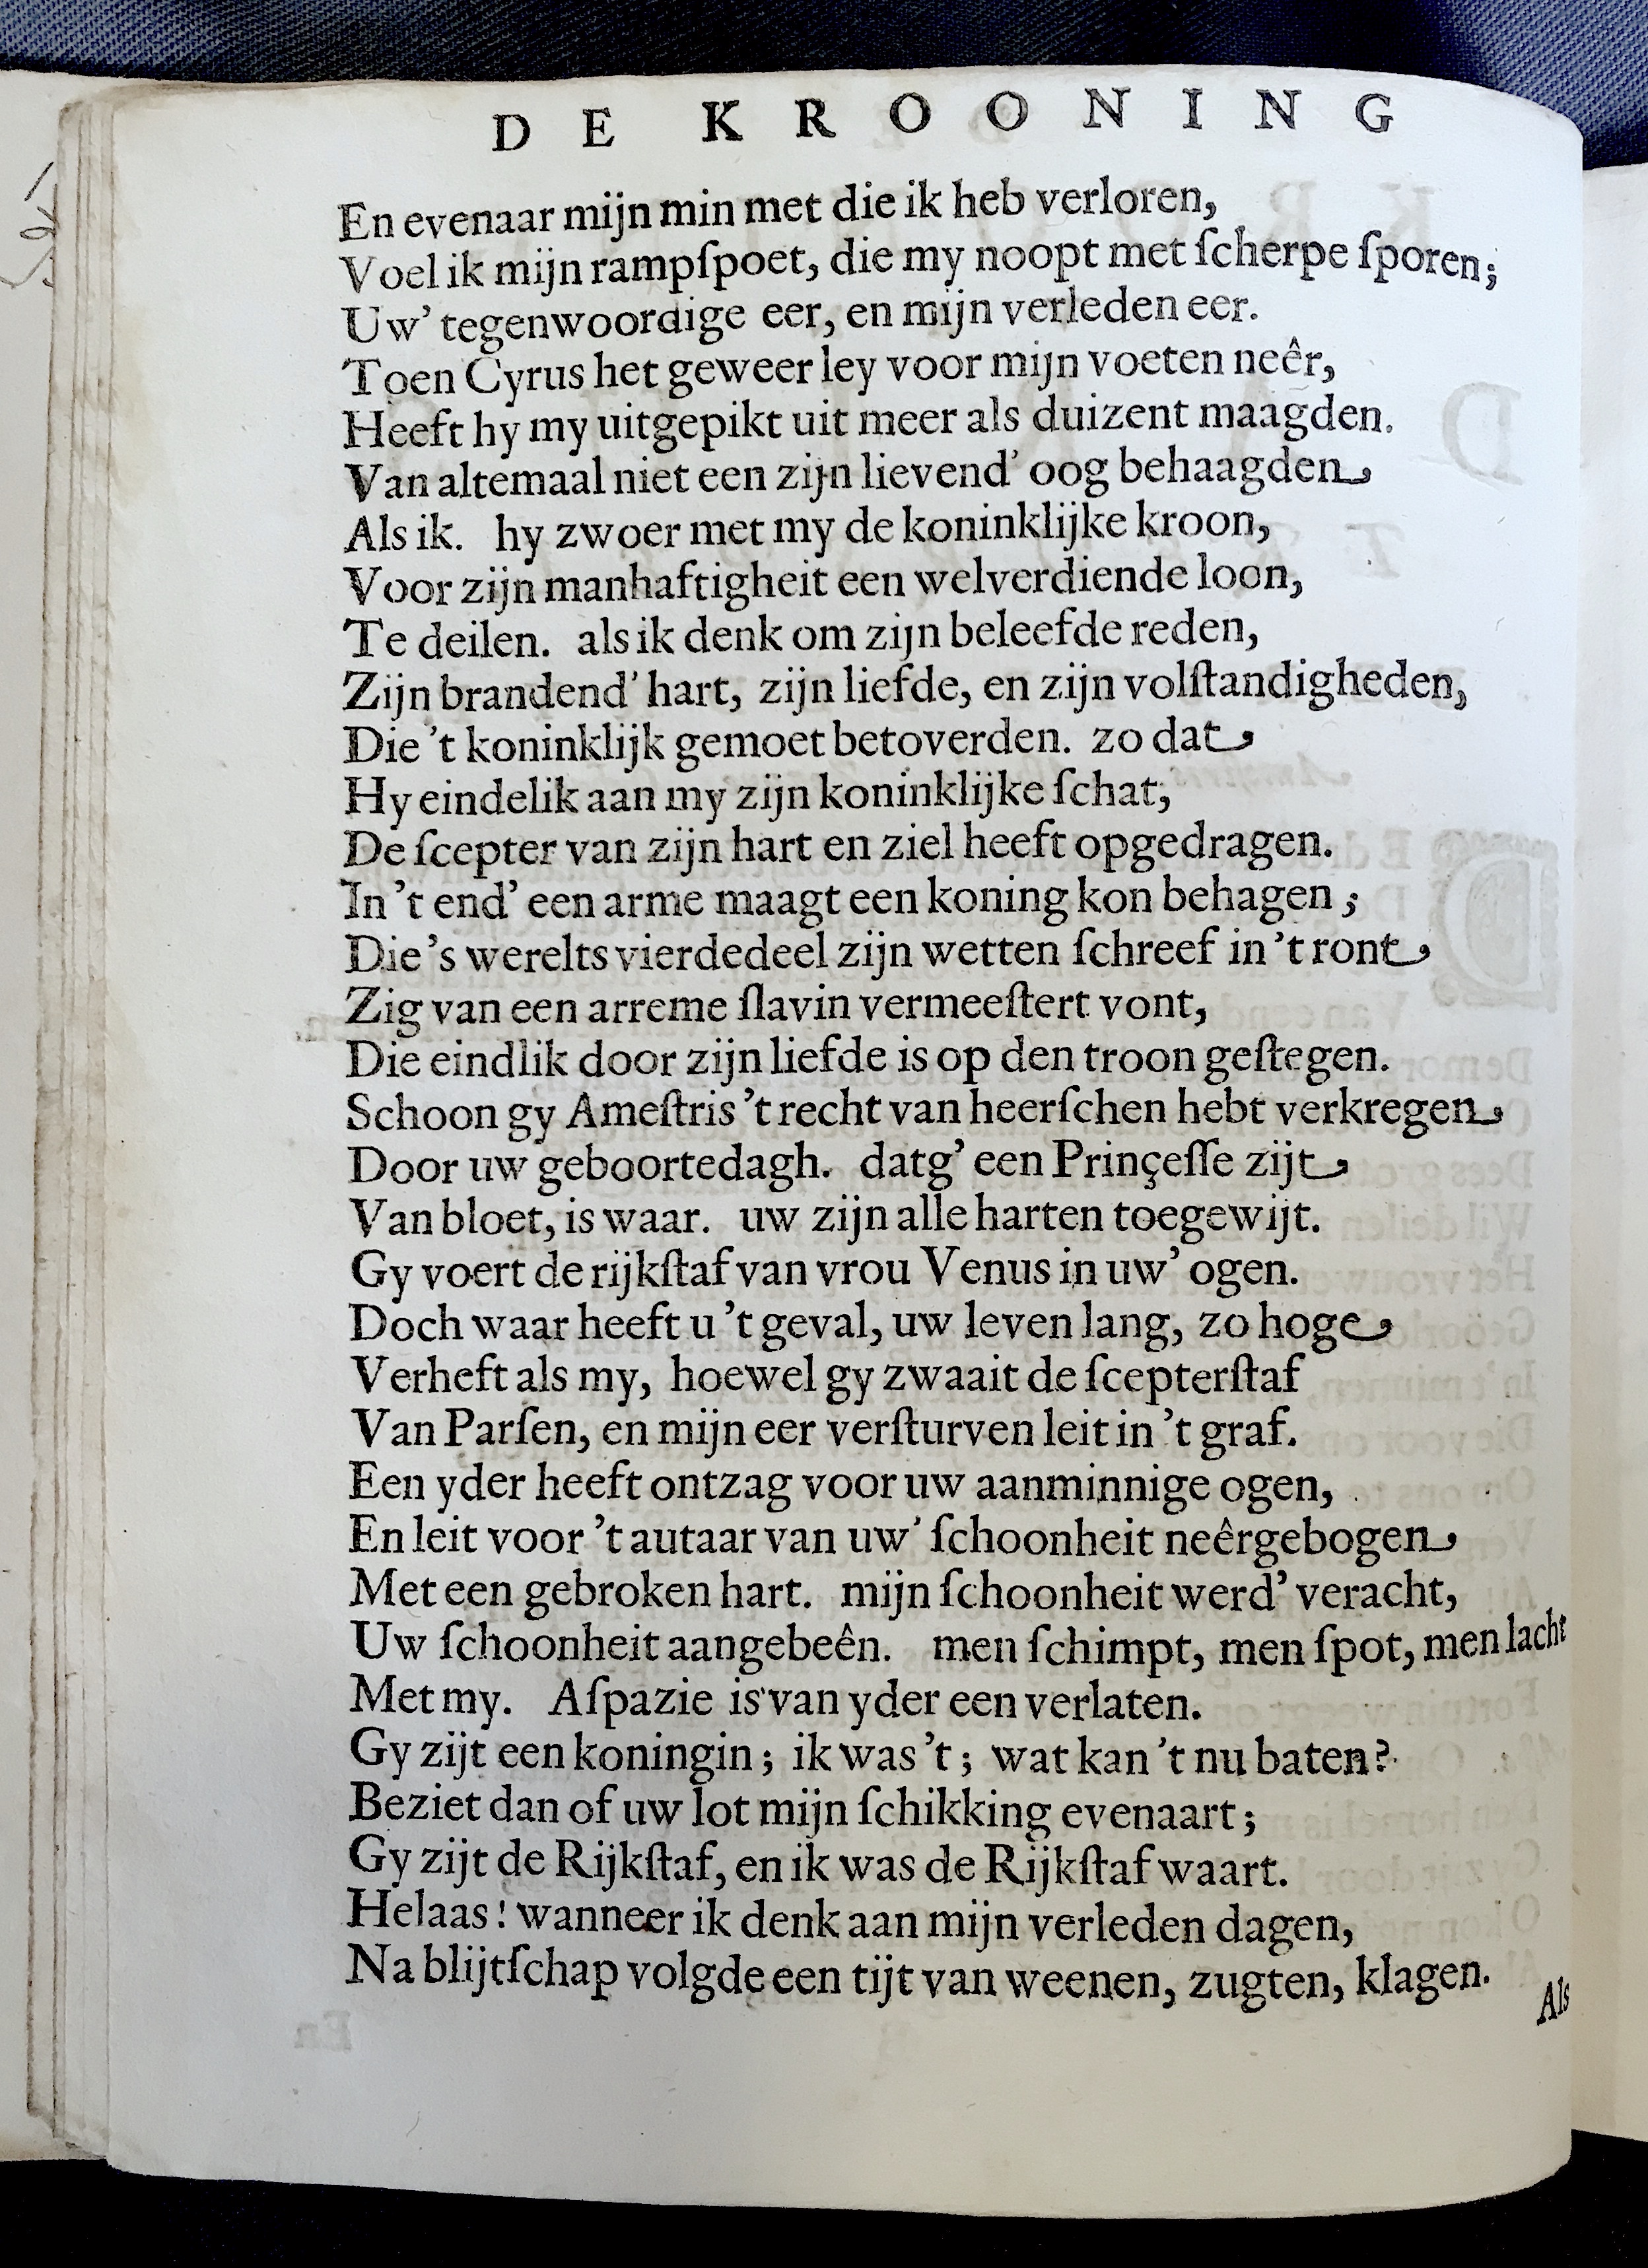 DE KROONING
En evenaar mijn min met die ik heb verloren,
Voel ik mijn rampſpoet, die my noopt met ſcherpe ſporen;
Uw' tegenwoordige eer, en mijn verleden eer.
Toen Cyrus het geweer ley voor mijn voeten neêr,
Heeft hy my uitgepikt uit meer als duizent maagden.
Van altemaal niet een zijn lievend' oog behaagden
Als ik. hy zwoer met my de koninklijke kroon,
Voor zijn manhaftigheit een welverdiende loon,
Te deilen. als ik denk om zijn beleefde reden,
Zijn brandend' hart, zijn liefde, en zijn volſtandigheden,
Die 't koninklijk gemoet betoverden. zo dat
Hy eindelik aan my zijn koninklijke ſchat,
De ſcepter van zijn hart en ziel heeft opgedragen.
In 't end' een arme maagt een koning kon behagen;
Die 's werelts vierdedeel zijn wetten ſchreef in 't ront
Zig van een arreme ſlavin vermeeſtert vont,
Die eindlik door zijn liefde is op den troon geſtegen.
Schoon gy Ameſtris 't recht van heerſchen hebt verkregen
Door uw geboortedagh. datg' een Prinçeſſe zijt
Van bloet, is waar. uw zijn alle harten toegewijt.
Gy voert de rijkſtaf van vrou Venus in uw' ogen.
Doch waar heeft u 't geval, uw leven lang, zo hoge
Verheft als my, hoewel gy zwaait de ſcepterſtaf
Van Parſen, en mijn eer verſturven leit in 't graf.
Een yder heeft ontzag voor uw aanminnige ogen,
En leit voor 't autaar van uw' ſchoonheit neêrgebogen
Met een gebroken hart. mijn ſchoonheit werd' veracht,
Uw ſchoonheit aangebeên. men ſchimpt, men ſpot, men lacht
Met my. Aſpazie is van yder een verlaten.
Gy zijt een koningin; ik was 't; wat kan 't nu baten?
Beziet dan of uw lot mijn ſchikking evenaart;
Gy zijt de Rijkſtaf, en ik was de Rijkſtaf waart.
Helaas! wanneer ik denk aan mijn verleden dagen,
Na blijtſchap volgde een tijt van weenen, zugten, klagen.
Als